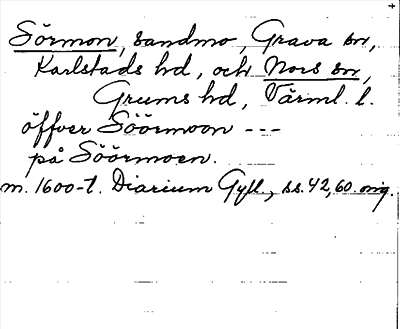 Sörmon, sandmo, Grava sn,
Karlstads hd, och Nors sn,
Grums hd, Värml. l.
öffver Söörmoon ---
på Söörmoen.
m. 1600-t. Diarium Gyll., ss. 42, 60. orig.